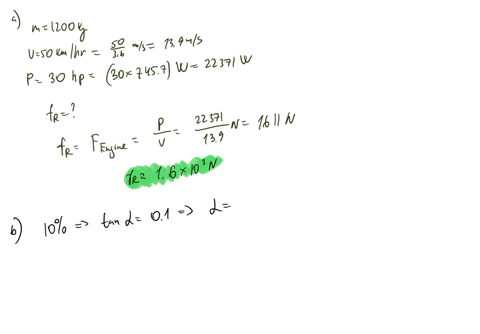 a)
m=1200kg
V=50 km/hr = 50/3.6 m/s = 13.9 m/s
P= 30 hp = (30×745.7) W = 22371 W
f_R=?
f_R = F_Engine = P/V = 22371/13.9 N = 1611 N
f_R = 1.6×10³ N
b) 10% => tan α = 0.1 => α =